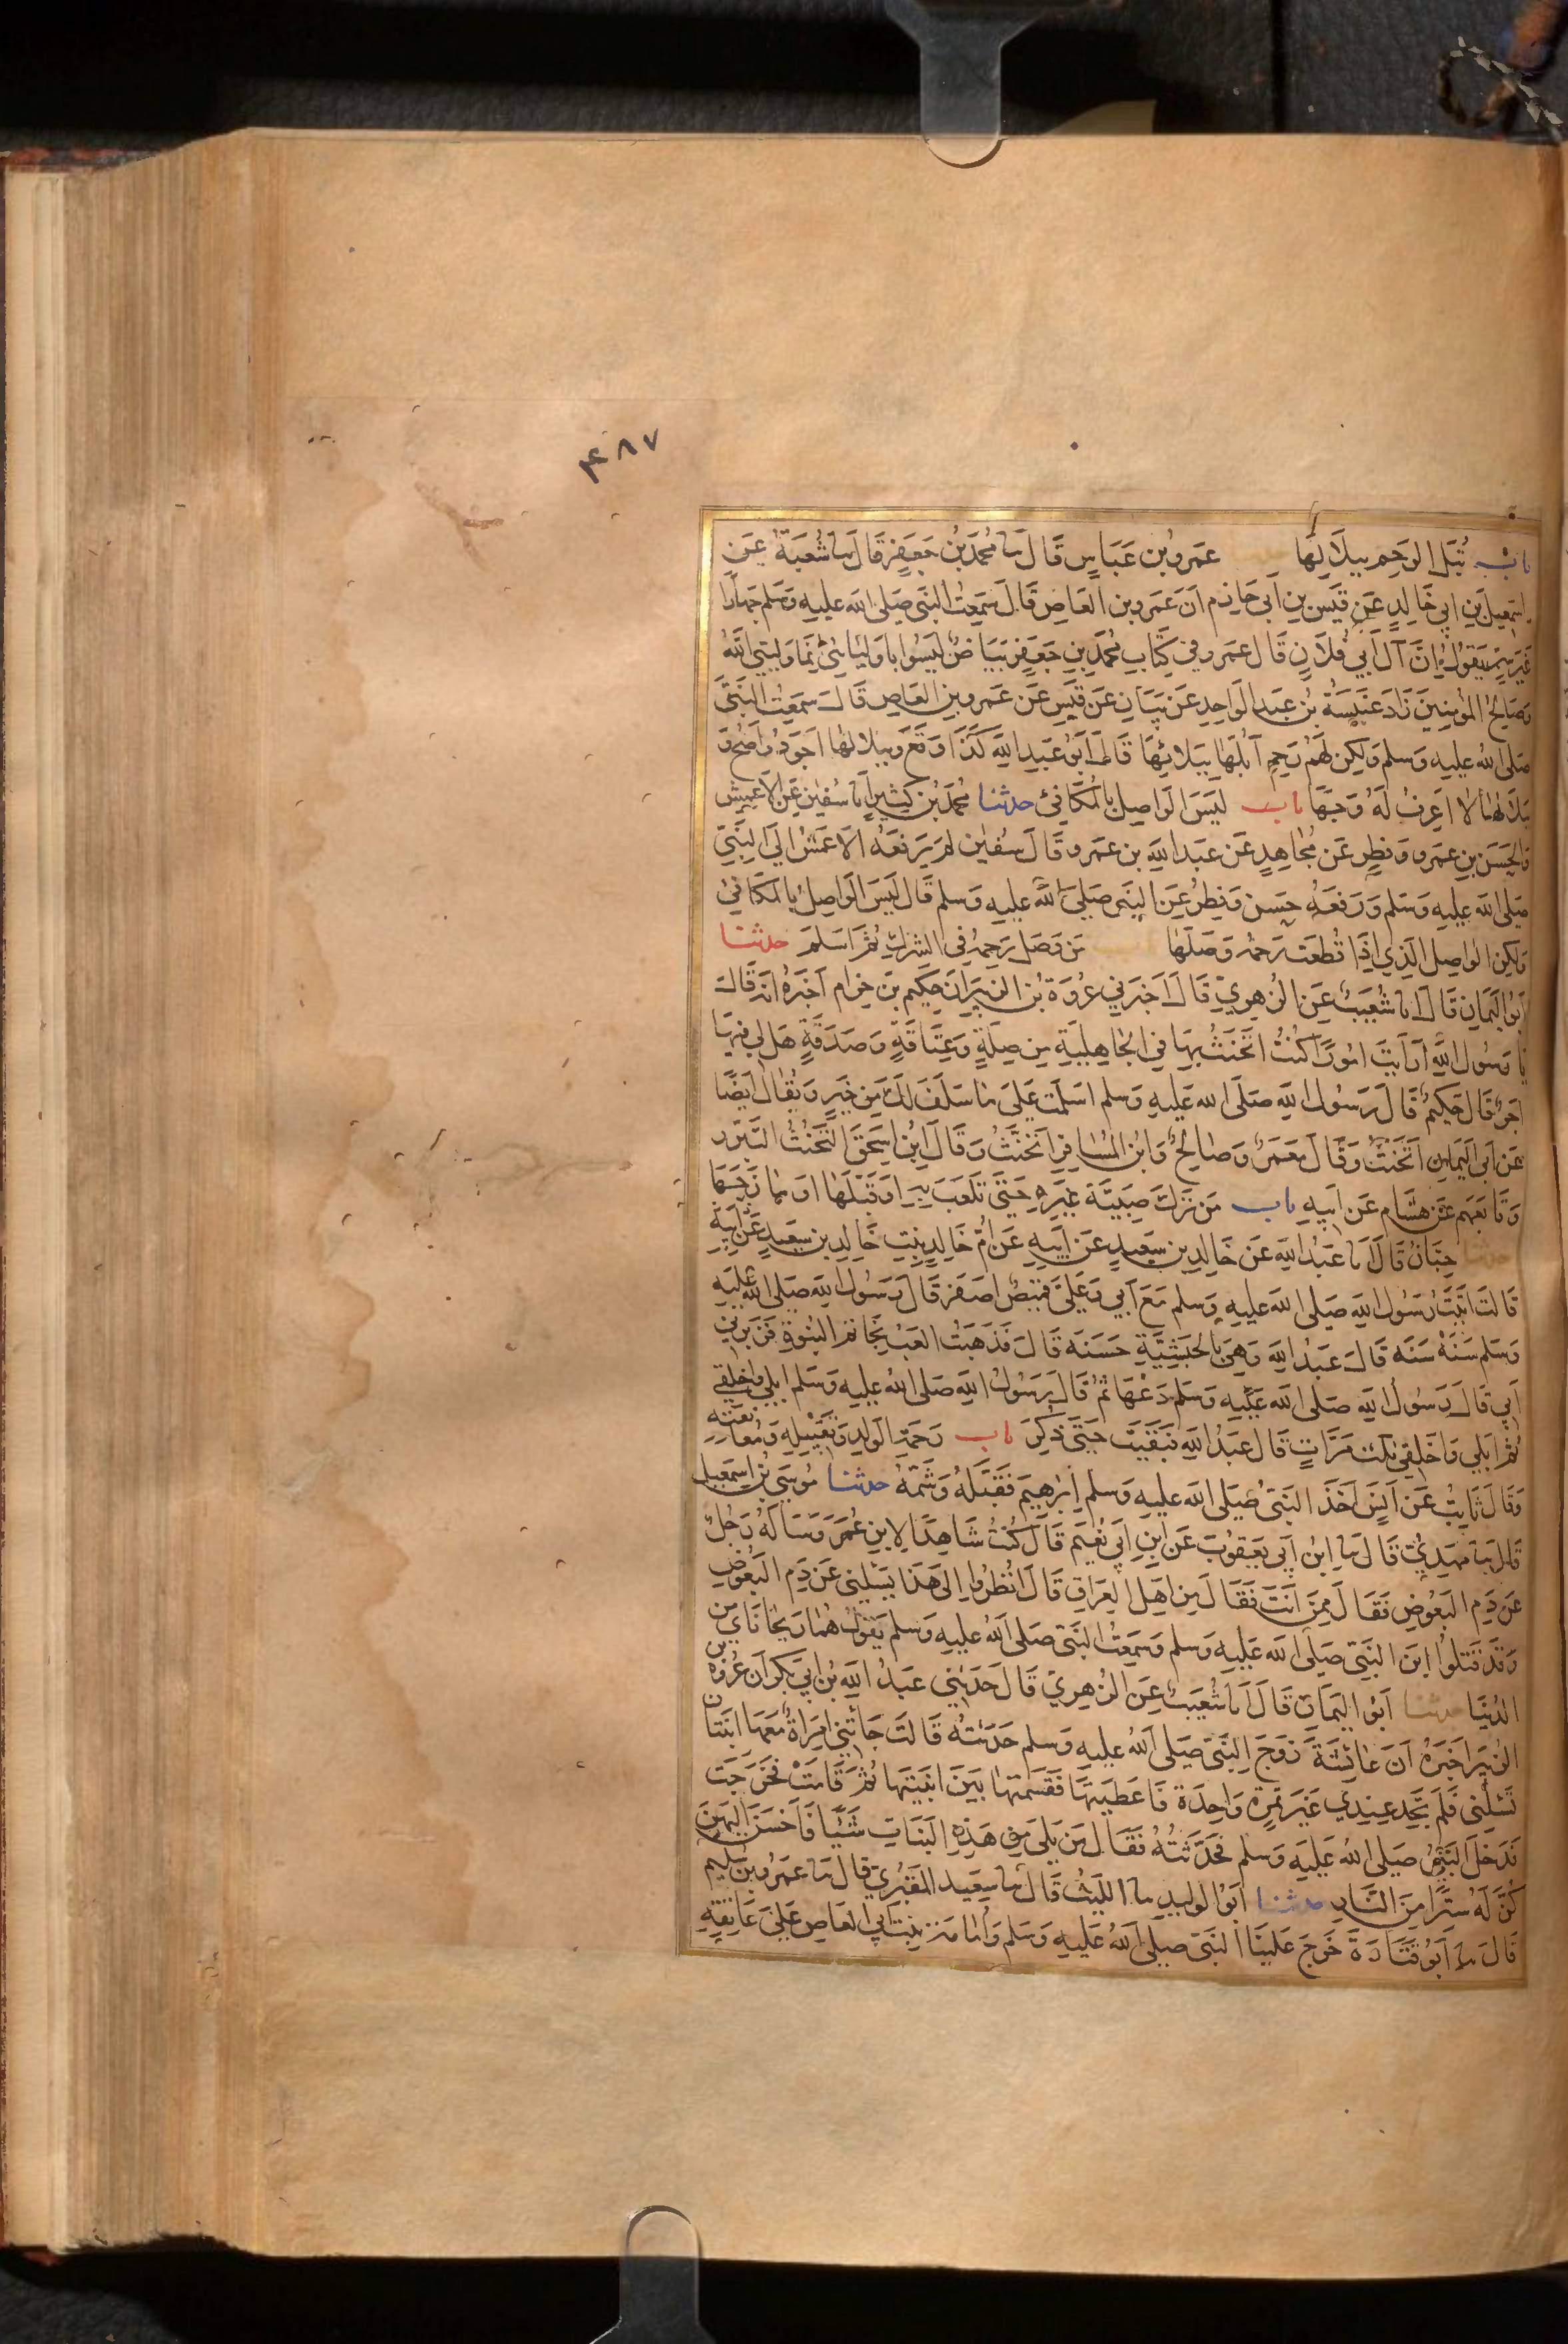 ٤٨٧
باب تُبَلّ الرحم ببلالها عمرو بن عباس قال نا محمد بن جعفر قال نا شعبة عن
اسمعيل بن ابي خالد عن قيس بن ابي حازم ان عمرو بن العاص قال سمعت النبى صلى الله عليه وسلم جهارا
غير سر يقول ان آل ابي فلان قال عمرو في كتاب محمد بن جعفر بياض ليسوا باوليائى انما وليي الله
وصالح المؤمنين زاد عنبسة بن عبد الواحد عن بيان عن قيس عن عمرو بن العاص قال سمعت النبى
صلى الله عليه وسلم ولكن لهم رحم ابلها ببلائها قال ابو عبد الله كذا وقع وببلالها اجود واصح و
بلائها لا اعرف له وجها باب ليس الواصل بالمكافئ حدثنا محمد بن كثير انا سفين عن الاعمش
والحسن بن عمرو وفطر عن مجاهد عن عبد الله بن عمرو قال سفين لم يرفعه الاعمش الى النبي
صلى الله عليه وسلم ورفعه حسن وفطر عن النبى صلى الله عليه وسلم قال ليس الواصل بالمكافئ
ولكن الواصل الذي اذا قطعت رحمه وصلها من وصل رحمه في الشرك ثم اسلم حدثنا
ابو اليمان قال انا شعيب عن الزهري قال اخبرني عروة بن الزبير ان حكيم بن حزام اخبره انه قال
يا رسول الله ارايت امورا كنت اتحنث بها في الجاهلية من صلة وعتاقة وصدقة هل لي فيها
اجر قال حكيم قال رسول الله صلى الله عليه وسلم اسلمت على ما سلف لك من خير ويقال ايضا
عن ابي اليمان اتحنث وقال معمر وصالح وابن المسافر اتحنث وقال ابن اسحق التحنث التبرر
وتابعهم عن هشام عن ابيه باب من ترك صبية غيره حتى تلعب به او قبلها او مازحها
حدثنا حبان قال انا عبد الله عن خالد بن سعيد عن ابيه عن ام خالد بنت خالد بن سعيد عن ابيه
قالت اتيت رسول الله صلى الله عليه وسلم مع ابي وعلي قميص اصفر قال رسول الله صلى الله عليه
وسلم سنه سنه قال عبد الله وهي بالحبشية حسنه قال فذهبت العب بخاتم النبوة فزبرني
ابي قال رسول الله صلى الله عليه وسلم دعها ثم قال رسول الله صلى الله عليه وسلم ابلي واخلقي
ثم ابلي واخلقي ثلث مرات قال عبد الله فبقيت حتى ذكر باب رحمة الولد وتقبيله ومعانقته
وقال ثابت عن انس اخذ النبى صلى الله عليه وسلم ابرهيم فقبله وشمه حدثنا موسى بن اسمعيل
قال نا مهدي قال نا ابن ابي يعقوب عن ابن ابي نعيم قال كنت شاهدا لابن عمر وساله رجل
عن دم البعوض فقال ممن انت فقال من اهل العراق قال انظروا الى هذا يسئلني عن دم البعوض
وقد قتلوا ابن النبي صلى الله عليه وسلم وسمعت النبى صلى الله عليه وسلم يقول هما ريحاناي من
الدنيا حدثنا ابو اليمان قال انا شعيب عن الزهري قال حدثني عبد الله بن ابي بكر ان عروة بن
الزبير اخبره ان عائشة زوج النبي صلى الله عليه وسلم حدثته قالت جائتني امراة معها ابنتان
تسئلني فلم تجد عندي غير تمرة واحدة فاعطيتها فقسمتها بين ابنتيها ثم قامت فخرجت
فدخل النبي صلى الله عليه وسلم فحدثته فقال من يلي من هذه البنات شيئا فاحسن اليهن
كن له سترا من النار حدثنا ابو الوليد نا الليث قال نا سعيد المقبري قال نا عمرو بن سليم
قال نا ابو قتادة خرج علينا النبى صلى الله عليه وسلم وامامة بنت ابي العاص على عاتقه